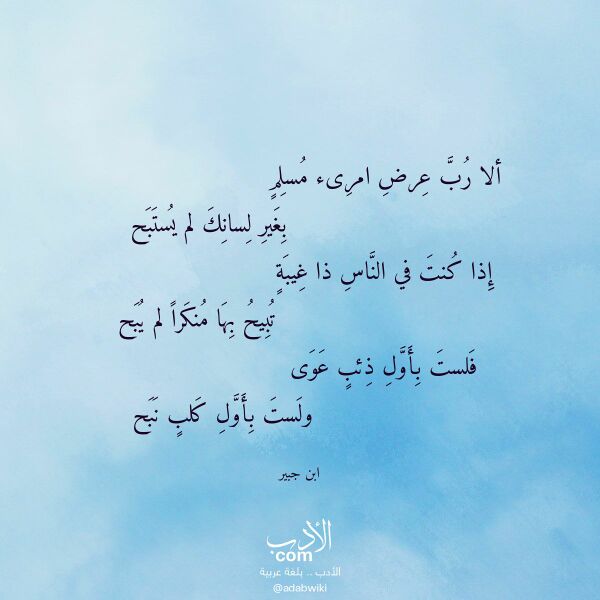 ألا رُبَّ عِرضِ امرِىء مُسلِمٍ
بِغَيرِ لِسانِكَ لم يُستَبَح
إِذا كُنتَ في النَّاسِ ذا غِيبَةٍ
تُبِيحُ بِهَا مُنكَراً لم يُبَح
فَلستَ بِأَوَّلِ ذِئبٍ عَوَى
ولَستَ بِأَوَّلِ كَلبٍ نَبَح
ابن جبير
الأدب
com
الأدب .. بلغة عربية
@adabwiki